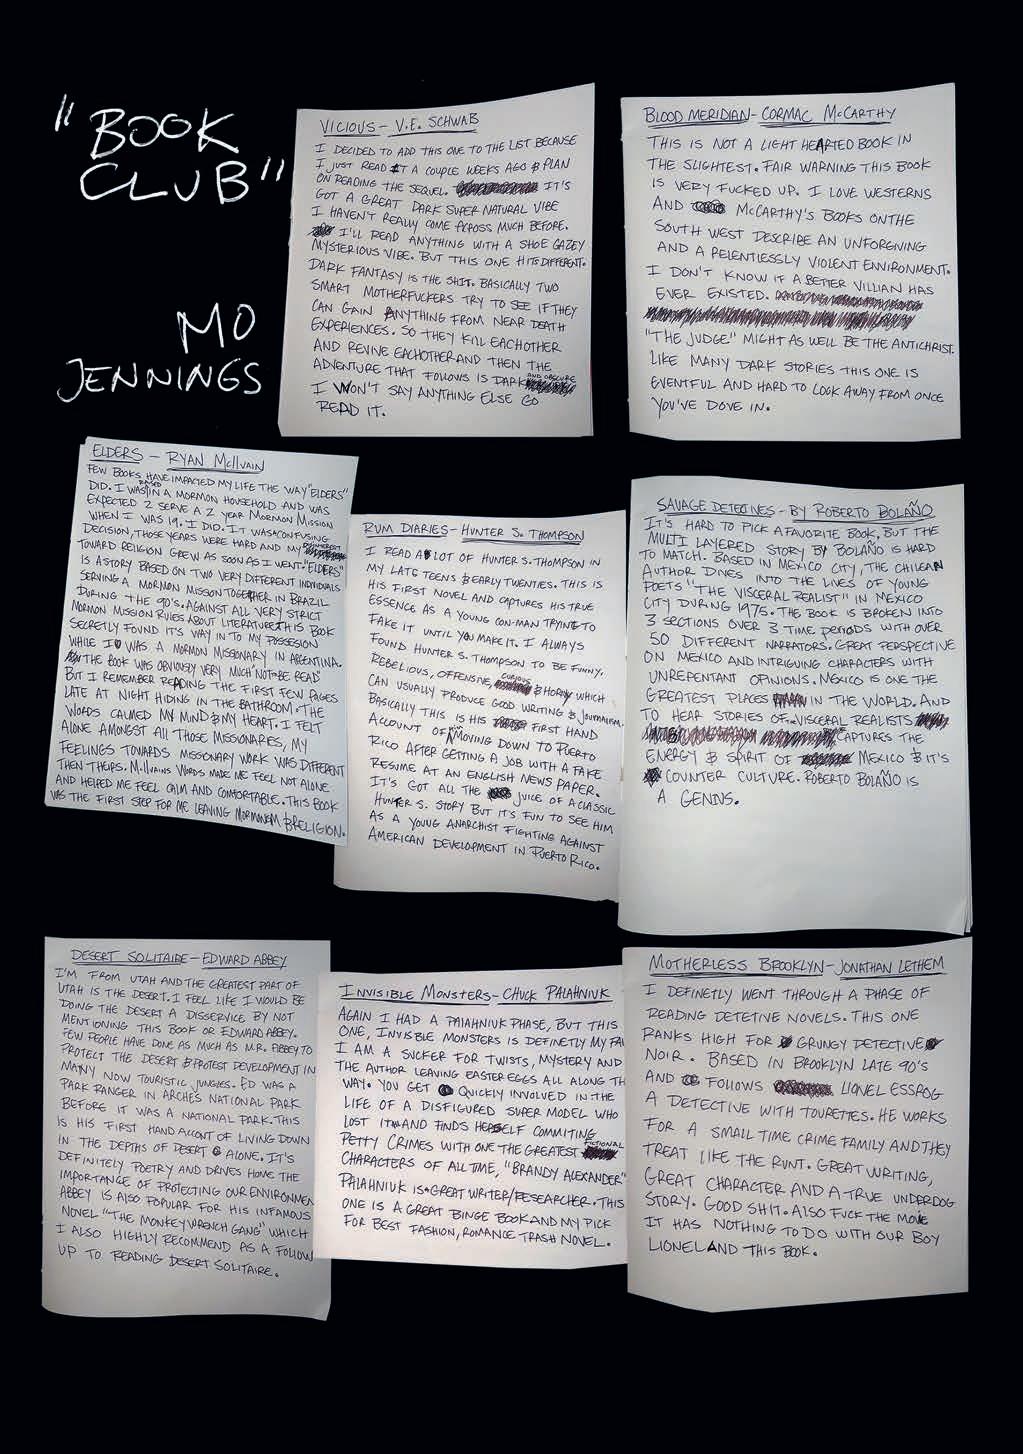 "BOOK
CLUB"
MO
JENNINGS
VICIOUS - V.E. SCHWAB
I DECIDED TO ADD THIS ONE TO THE LIST BECAUSE
I JUST READ IT A COUPLE WEEKS AGO & PLAN
ON READING THE SEQUEL. IT'S
GOT A GREAT DARK SUPER NATURAL VIBE
I HAVEN'T REALLY COME ACROSS MUCH BEFORE.
I'LL READ ANYTHING WITH A SHOE GAZEY
MYSTERIOUS VIBE. BUT THIS ONE HITS DIFFERENT.
DARK FANTASY IS THE SHIT. BASICALLY TWO
SMART MOTHERFUCKERS TRY TO SEE IF THEY
CAN GAIN ANYTHING FROM NEAR DEATH
EXPERIENCES. SO THEY KILL EACHOTHER
AND REVIVE EACHOTHER AND THEN THE
ADVENTURE THAT FOLLOWS IS DARK AND OBSCURE
I WON'T SAY ANYTHING ELSE GO
READ IT.
BLOOD MERIDIAN - CORMAC McCARTHY
THIS IS NOT A LIGHT HEARTED BOOK IN
THE SLIGHTEST. FAIR WARNING THIS BOOK
IS VERY FUCKED UP. I LOVE WESTERNS
AND McCARTHY'S BOOKS ON THE
SOUTH WEST DESCRIBE AN UNFORGIVING
AND A RELENTLESSLY VIOLENT ENVIRONMENT.
I DON'T KNOW IF A BETTER VILLIAN HAS
EVER EXISTED.
"THE JUDGE" MIGHT AS WELL BE THE ANTICHRIST.
LIKE MANY DARK STORIES THIS ONE IS
EVENTFUL AND HARD TO LOOK AWAY FROM ONCE
YOU'VE DOVE IN.
ELDERS - RYAN McIlvain
FEW BOOKS HAVE IMPACTED MY LIFE THE WAY "ELDERS"
DID. I WAS RAISED IN A MORMON HOUSEHOLD AND WAS
EXPECTED 2 SERVE A 2 YEAR MORMON MISSION
WHEN I WAS 19. I DID. IT WAS A CONFUSING
DECISION, THOSE YEARS WERE HARD AND MY DISINTEREST
TOWARD RELIGION GREW AS SOON AS I WENT. "ELDERS"
IS A STORY BASED ON TWO VERY DIFFERENT INDIVIDUALS
SERVING A MORMON MISSON TOGETHER IN BRAZIL
DURING THE 90'S. AGAINST ALL VERY STRICT
MORMON MISSION RULES ABOUT LITERATURE THIS BOOK
SECRETLY FOUND IT'S WAY IN TO MY POSSESION
WHILE I WAS A MORMON MISSIONARY IN ARGENTINA.
THE BOOK WAS OBVIOUSLY VERY MUCH "NOT-BE READ"
BUT I REMEMBER READING THE FIRST FEW PAGES
LATE AT NIGHT HIDING IN THE BATHROOM. THE
WORDS CALMED MY MIND & MY HEART. I FELT
ALONE AMONGST ALL THOSE MISSIONARIES, MY
FEELINGS TOWARDS MISSIONARY WORK WAS DIFFERENT
THEN THEIRS. McIlvains WORDS MADE ME FEEL NOT ALONE
AND HELPED ME FEEL CALM AND COMFORTABLE. THIS BOOK
WAS THE FIRST STEP FOR ME LEAVING MORMONISM & RELIGION.
RUM DIARIES - HUNTER S. THOMPSON
I READ A LOT OF HUNTER S. THOMPSON IN
MY LATE TEENS & EARLY TWENTIES. THIS IS
HIS FIRST NOVEL AND CAPTURES HIS TRUE
ESSENCE AS A YOUNG CON-MAN TRYING TO
FAKE IT UNTIL YOU MAKE IT. I ALWAYS
FOUND HUNTER S. THOMPSON TO BE FUNNY,
REBELIOUS, OFFENSIVE, CURIOUS & HORNY WHICH
CAN USUALLY PRODUCE GOOD WRITING & JOURNALISM.
BASICALLY THIS IS HIS FIRST HAND
ACCOUNT OF HIM MOVING DOWN TO PUERTO
RICO AFTER GETTING A JOB WITH A FAKE
RESUME AT AN ENGLISH NEWS PAPER.
IT'S GOT ALL THE JUICE OF A CLASSIC
HUNTER S. STORY BUT IT'S FUN TO SEE HIM
AS A YOUNG ANARCHIST FIGHTING AGAINST
AMERICAN DEVELOPMENT IN PUERTO RICO.
SAVAGE DETECTIVES - BY ROBERTO BOLAÑO
IT'S HARD TO PICK A FAVORITE BOOK, BUT THE
MULTI LAYERED STORY BY BOLAÑO IS HARD
TO MATCH. BASED IN MEXICO CITY, THE CHILEAN
AUTHOR DIVES INTO THE LIVES OF YOUNG
POETS "THE VISCERAL REALIST" IN MEXICO
CITY DURING 1975. THE BOOK IS BROKEN INTO
3 SECTIONS OVER 3 TIME PERIODS WITH OVER
50 DIFFERENT NARRATORS. GREAT PERSPECTIVE
ON MEXICO AND INTRIGUING CHARACTERS WITH
UNREPENTANT OPINIONS. MEXICO IS ONE THE
GREATEST PLACES IN THE WORLD. AND
TO HEAR STORIES OF VISCERAL REALISTS
CAPTURES THE
ENERGY & SPIRIT OF MEXICO & IT'S
COUNTER CULTURE. ROBERTO BOLAÑO IS
A GENIUS.
DESERT SOLITAIRE - EDWARD ABBEY
I'M FROM UTAH AND THE GREATEST PART OF
UTAH IS THE DESERT. I FEEL LIKE I WOULD BE
DOING THE DESERT A DISSERVICE BY NOT
MENTIONING THIS BOOK OR EDWARD ABBEY.
FEW PEOPLE HAVE DONE AS MUCH AS MR. ABBEY TO
PROTECT THE DESERT & PROTEST DEVELOPMENT IN
MANY NOW TOURISTIC JUNGLES. ED WAS A
PARK RANGER IN ARCHES NATIONAL PARK
BEFORE IT WAS A NATIONAL PARK. THIS
IS HIS FIRST HAND ACCONT OF LIVING DOWN
IN THE DEPTHS OF DESERT ALONE. IT'S
DEFINITELY POETRY AND DRIVES HOME THE
IMPORTANCE OF PROTECTING OUR ENVIRONMEN
ABBEY IS ALSO POPULAR FOR HIS INFAMOUS
NOVEL "THE MONKEY WRENCH GANG" WHICH
I ALSO HIGHLY RECOMMEND AS A FOLLOW
UP TO READING DESERT SOLITAIRE.
INVISIBLE MONSTERS - CHUCK PALAHNIUK
AGAIN I HAD A PALAHNIUK PHASE, BUT THIS
ONE, INVISBLE MONSTERS IS DEFINETLY MY FAV
I AM A SUCKER FOR TWISTS, MYSTERY AND
THE AUTHOR LEAVING EASTER EGGS ALL ALONG TH
WAY. YOU GET QUICKLY INVOLVED IN THE
LIFE OF A DISFIGURED SUPER MODEL WHO
LOST IT AND FINDS HERSELF COMMITING
PETTY CRIMES WITH ONE THE GREATEST FICTIONAL
CHARACTERS OF ALL TIME, "BRANDY ALEXANDER"
PALAHNIUK IS A GREAT WRITER/RESEARCHER. THIS
ONE IS A GREAT BINGE BOOK AND MY PICK
FOR BEST FASHION, ROMANCE TRASH NOVEL.
MOTHERLESS BROOKLYN - JONATHAN LETHEM
I DEFINETLY WENT THROUGH A PHASE OF
READING DETETIVE NOVELS. THIS ONE
RANKS HIGH FOR GRUNGY DETECTIVE
NOIR. BASED IN BROOKLYN LATE 90'S
AND FOLLOWS LIONEL ESSROG
A DETECTIVE WITH TOURETTES. HE WORKS
FOR A SMALL TIME CRIME FAMILY AND THEY
TREAT LIKE THE RUNT. GREAT WRITING,
GREAT CHARACTER AND A TRUE UNDERDOG
STORY. GOOD SHIT. ALSO FUCK THE MOVIE
IT HAS NOTHING TO DO WITH OUR BOY
LIONEL AND THIS BOOK.